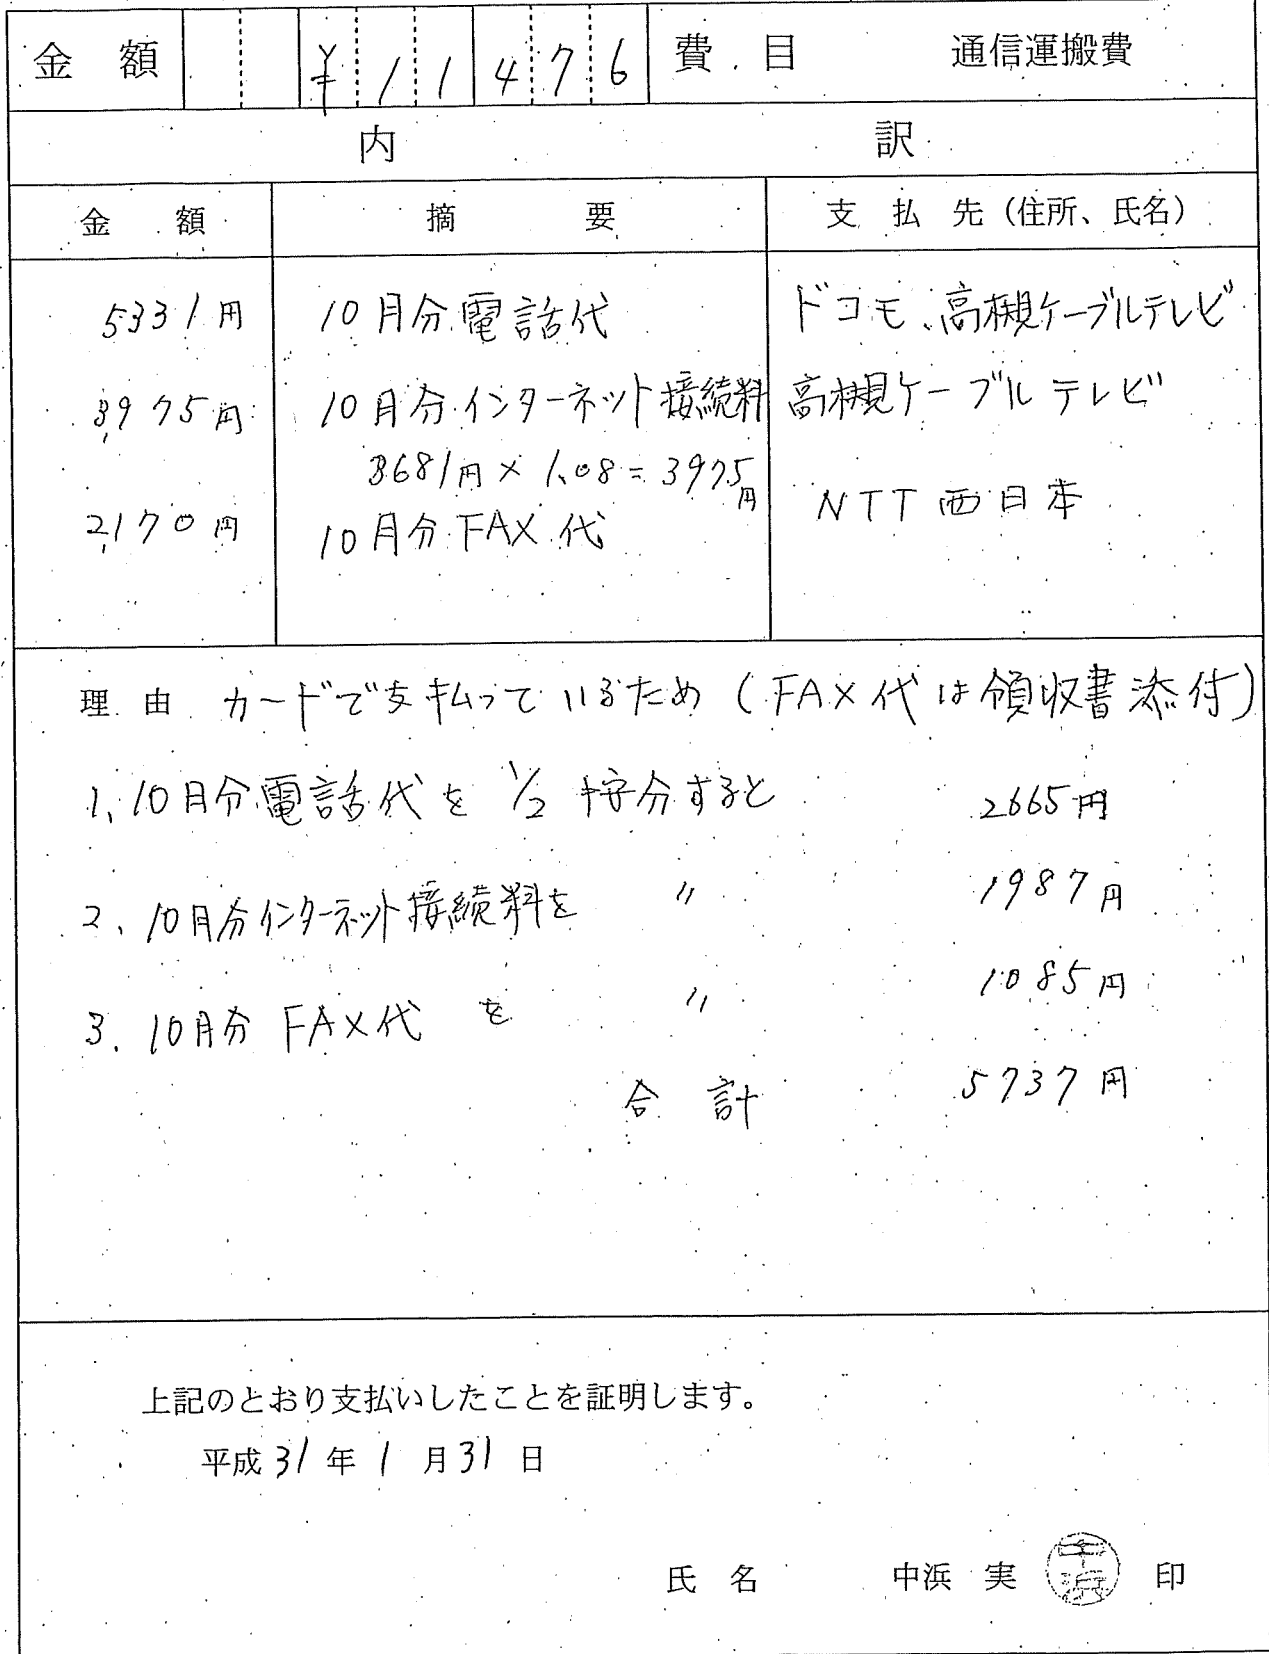 金 額 ¥11476 費 目 通信運搬費
内 訳
金 額 摘 要 支 払 先 (住所、氏名)
5331円 10月分電話代 ドコモ、高槻ケーブルテレビ
3,975円 10月分インターネット接続料 高槻ケーブルテレビ
3681円×1.08=3975円
2,170円 10月分FAX代 NTT西日本
理 由 カードで支払っているため(FAX代は領収書添付)
1、10月分電話代を1/2按分すると 2665円
2、10月分インターネット接続料を 〃 1987円
3、10月分FAX代 を 〃 1085円
合 計 5737円
上記のとおり支払いしたことを証明します。
平成31年1月31日
氏 名 中浜 実 中浜 印